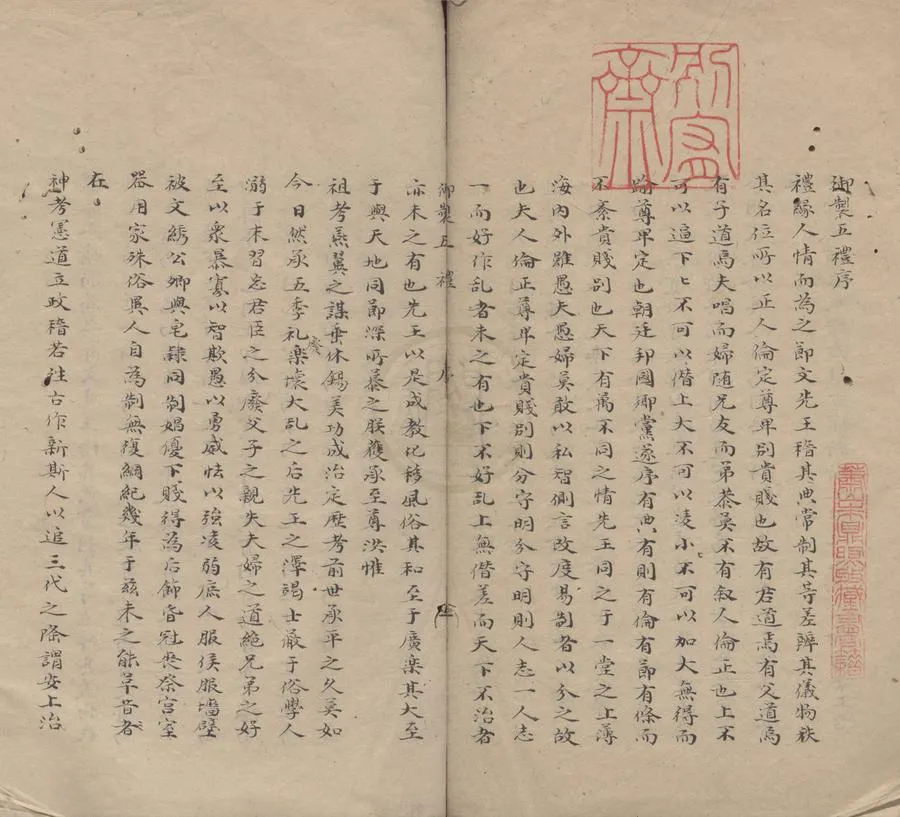 御製五禮序
禮緣人情而為之節文先王稽其典常制其等差辨其儀物秩
其名位所以正人倫定尊卑別貴賤也故有君道焉有父道焉
有子道焉夫唱而婦随兄友而弟恭莫不有叙人倫正也上不
可以逼下下不可以僭上大不可以凌小小不可以加大無得而
踰尊卑定也朝廷邦國鄉黨遂序有典有則有倫有節有條而
不紊貴賤別也天下有萬不同之情先王同之于一堂之上薄
海內外雖愚夫愚婦莫敢以私智側言改度易制者以分之故
也夫人倫正尊卑定貴賤別則分守明分守明則人志一人志
一而好作乱者未之有也下不好乱上無僭差而天下不治者
御製五禮 序 二
亦未之有也先王以是成教化移風俗其和至于廣楽其大至
于與天地同節深所慕之朕獲承至尊洪惟
祖考燕翼之謀垂休錫美功成治定歷考前世承平之久莫如
今日然承五季礼楽壞大乱之后先王之澤竭士蔽于俗學人
廢
溺于末習忘君臣之分廢父子之親失夫婦之道絶兄弟之好
至以衆暴寡以智欺愚以勇威怯以強凌弱庶人服侯服墻壁
被文綉公卿與皂隷同制娼優下賤得為后飾昏冠喪祭宫室
器用家殊俗異人自為制無復綱紀幾年于兹未之能革昔者
在
神考憲道立政稽若往古作新斯人以追三代之隆謂安上治